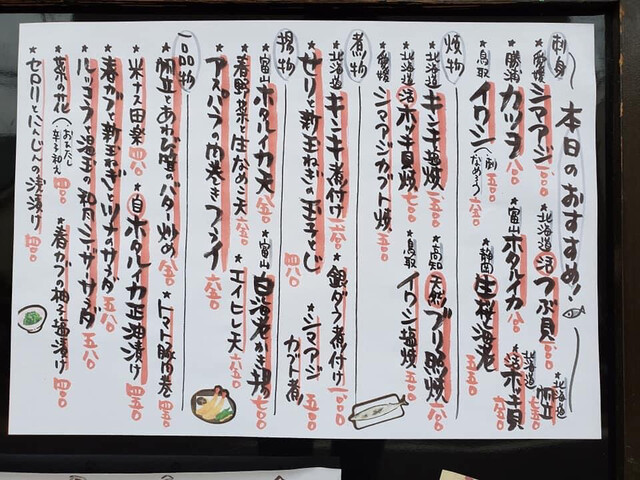 本日のおすすめ!
刺身
★愛媛 シマアジ
★北海道 活 つぶ貝
★北海道 帆立
★勝浦 カツオ
★富山 ホタルイカ
★北海道 活 ホッキ貝
★鳥取 イワシ(刺 なめろう)
★静岡 生桜海老 五五〇
焼物
★北海道 キンキ塩焼
★高知 天然 ブリ照焼
★北海道 活 ホッキ貝焼 七〇〇
★鳥取 イワシ塩焼
★愛媛 シマアジカブト焼
煮物
★北海道 キンキ煮付け
★銀ダラ煮付け
★せりと新玉ねぎの玉子とじ 四八〇
★シマアジカブト煮
揚物
★富山 ホタルイカ天
★富山 白海老かき揚 七〇〇
★春野菜と生なめこ天
★エイヒレ天
★アスパラの肉巻きフライ
一品物
★帆立とあわび茸バター炒め
★トマト豚肉巻
★米ナス田楽
★自 ホタルイカ正油漬け
★春カブと新玉ねぎとツナのサラダ 五八〇
★ルッコラと温玉の和風シーザーサラダ 五八〇
★菜の花(おひたし 辛子和え)
★春カブの柚子塩漬け
★セロリとにんじんの浅漬け